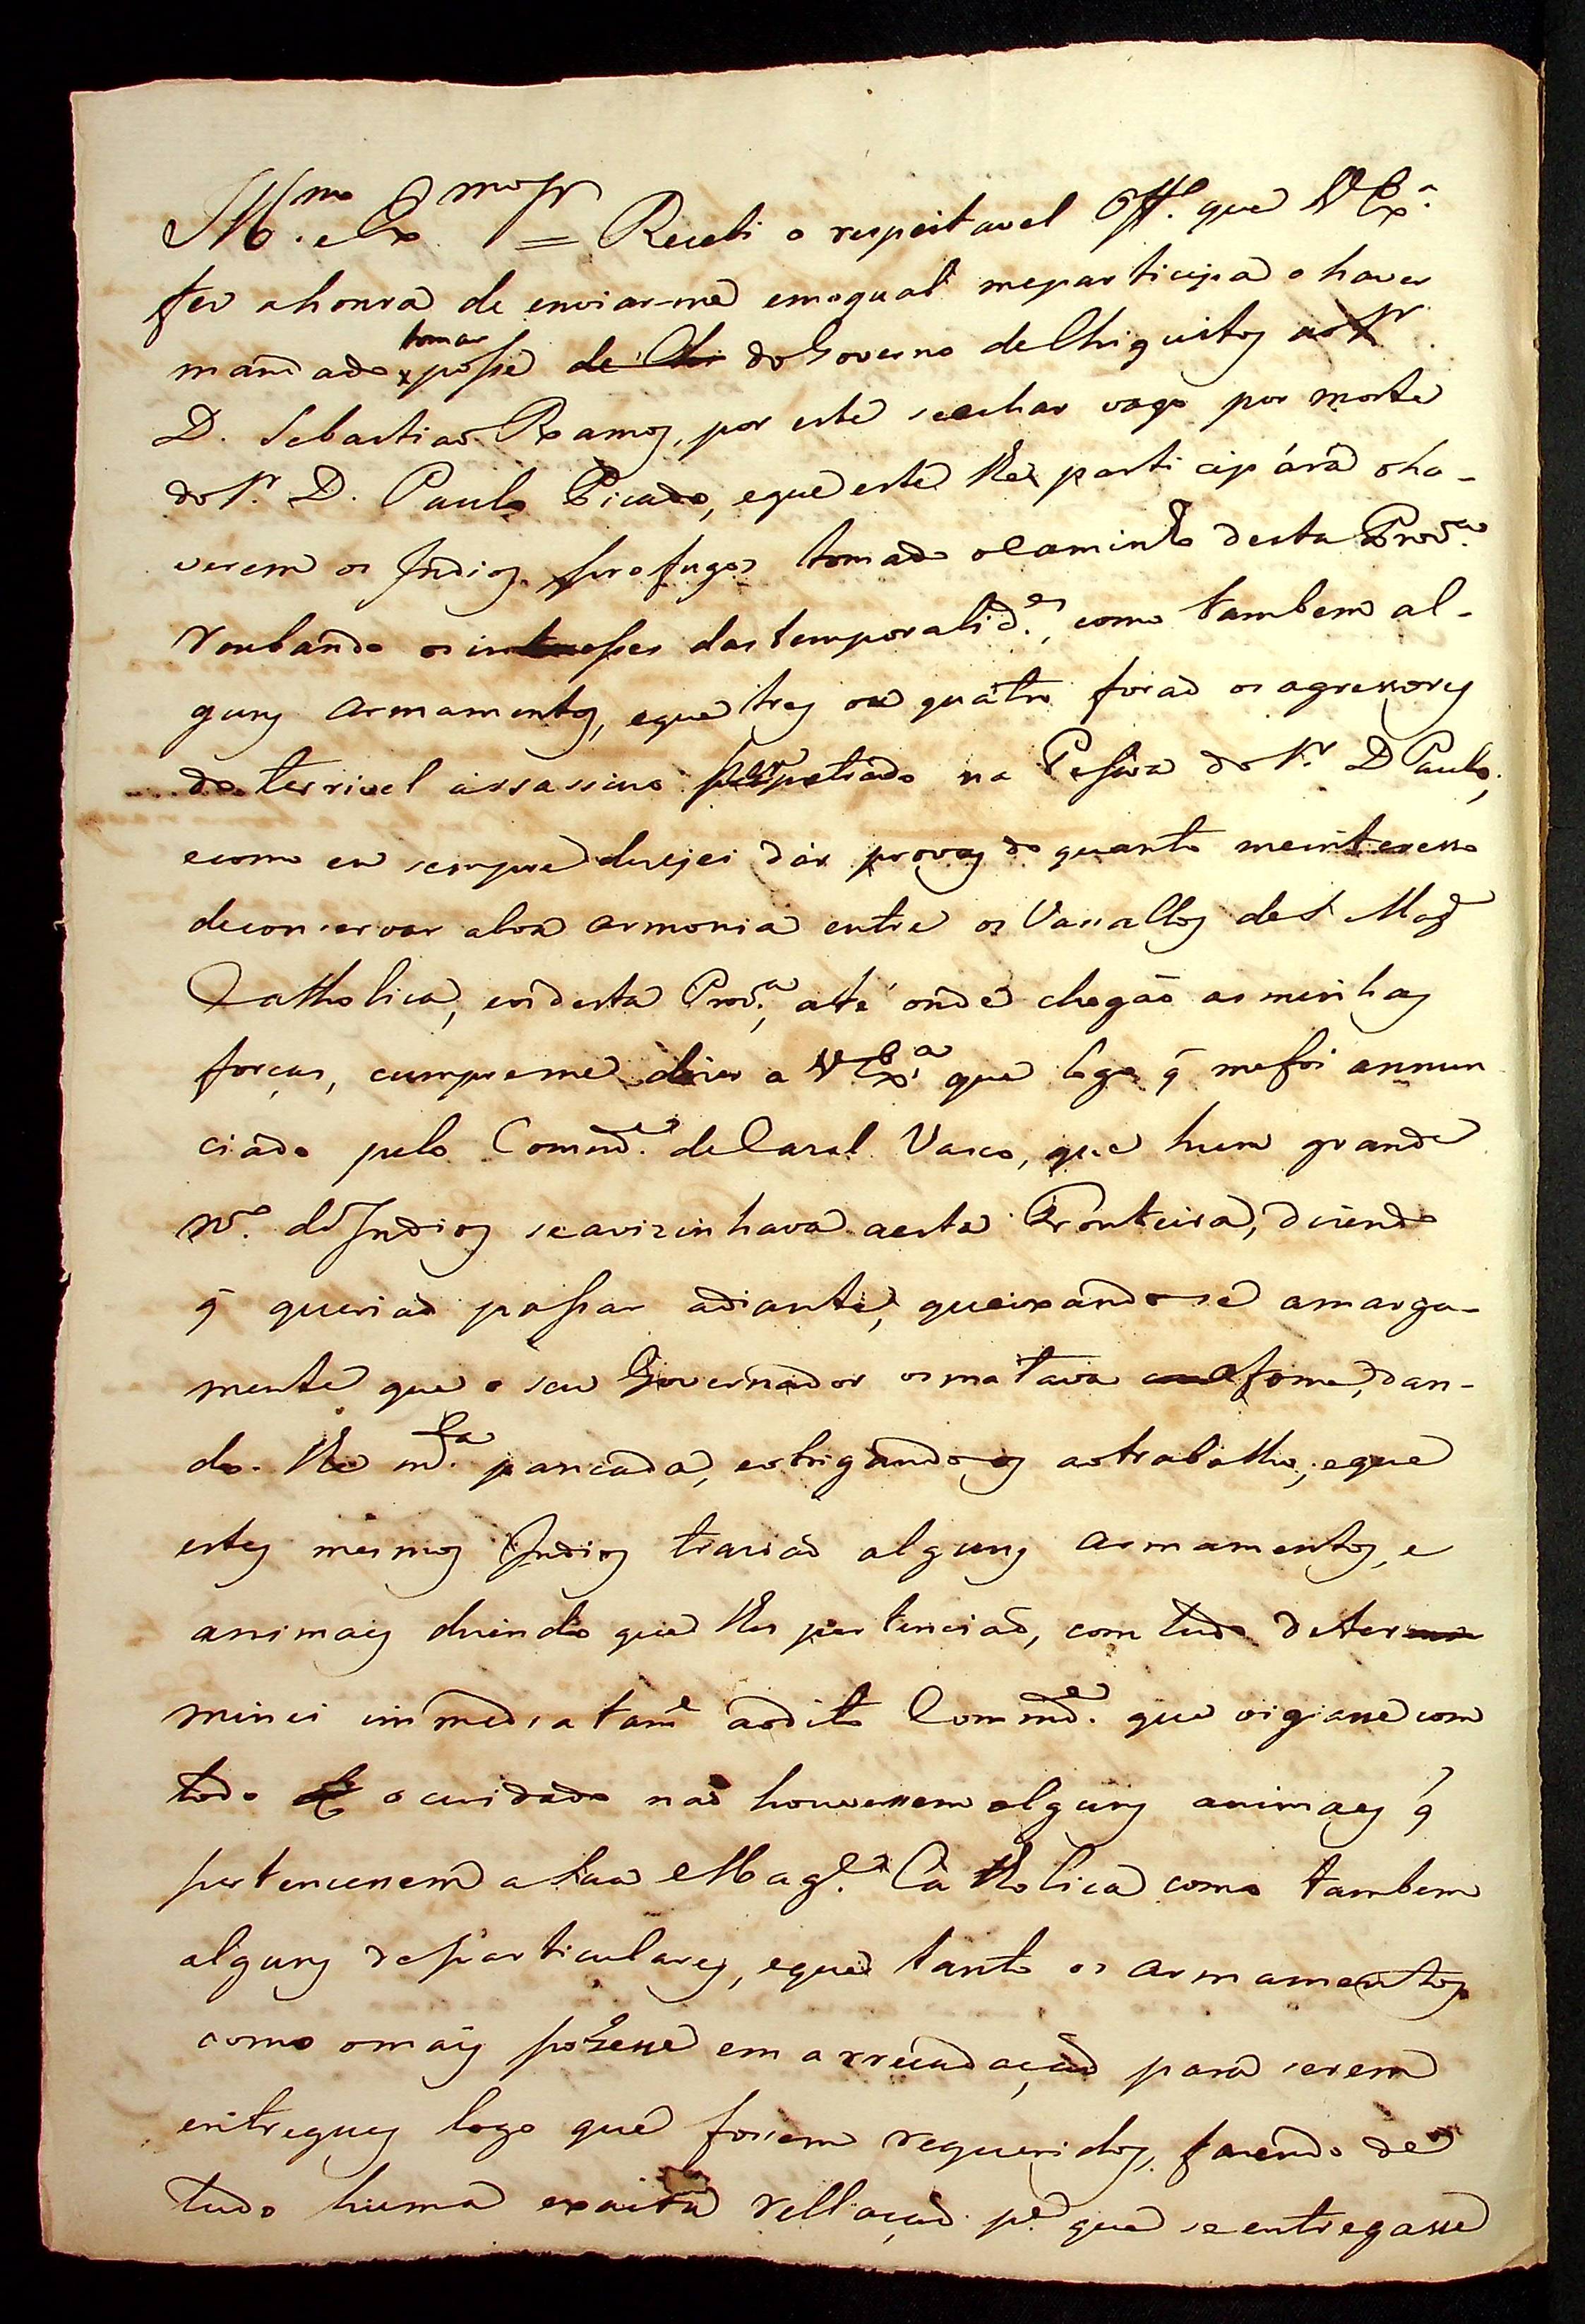 Ill.mo e Ex.mo Sr = Recebi o respeitavel Off.o que V Ex.a
fez ahonra de enviar-me emoqual meparticipa o haver
mandado tomar posse de Chi do Governo de Chiquitos ao Sr.
D. Sebastiaõ Ramos, por este seachar vago por morte
do Sr. D. Paulo Picado, eque este lhe participára o ha-
verem os Indios profugos tomado o Caminho desta Prov.a
roubando os interesses das temporalid.es, como tambem al-
guns armamentos, eque tres ou quatro foraõ os agressores
do terrivel assassino perpetrado na Pessoa do Sr. D Paulo,
ecomo eu sempre desejei dár provas do quanto meinteresso
deconservar aboa armonia entre os Vassallos de S Mag.e
Catholica, eos desta Prov.a, até onde chegaõ as minhas
forças, cumpreme dizer a V Ex.a que logo q̃ mefoi annun
ciado pelo Comd.e deCasal Vasco, que hum grande
N.o de Indios seavizinhava aesta Fronteira, dizendo
q̃ queriaõ passar adiante, queixando-se amarga-
mente que o seu Governador osmatava a fome, dan-
do-lhe m.ta pancada, eobrigando-os aotrabalho, eque
estes mesmos Indios traziaõ alguns armamentos, e
animaes dizendo que lhes pertenciaõ, com tudo deter
minei immediatam.e aodito Command.e que vigiasse com
todo o cuidado naõ houvessem alguns animaes q̃
pertencessem a Sua Mag.e Catholica como tambem
alguns departiculares, eque tanto os armamentos
como omais pozesse em arrecadaçaõ para serem
entregues logo que fossem requeridos, fazendo de
tudo huma exacta rellaçaõ p.a que seentregasse